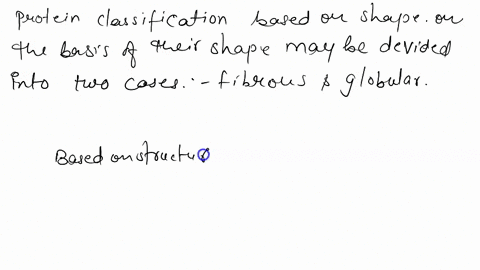 protein classification based on shape. on
the basis of their shape may be devided
into two cases :- fibrous & globular.
Based on structu